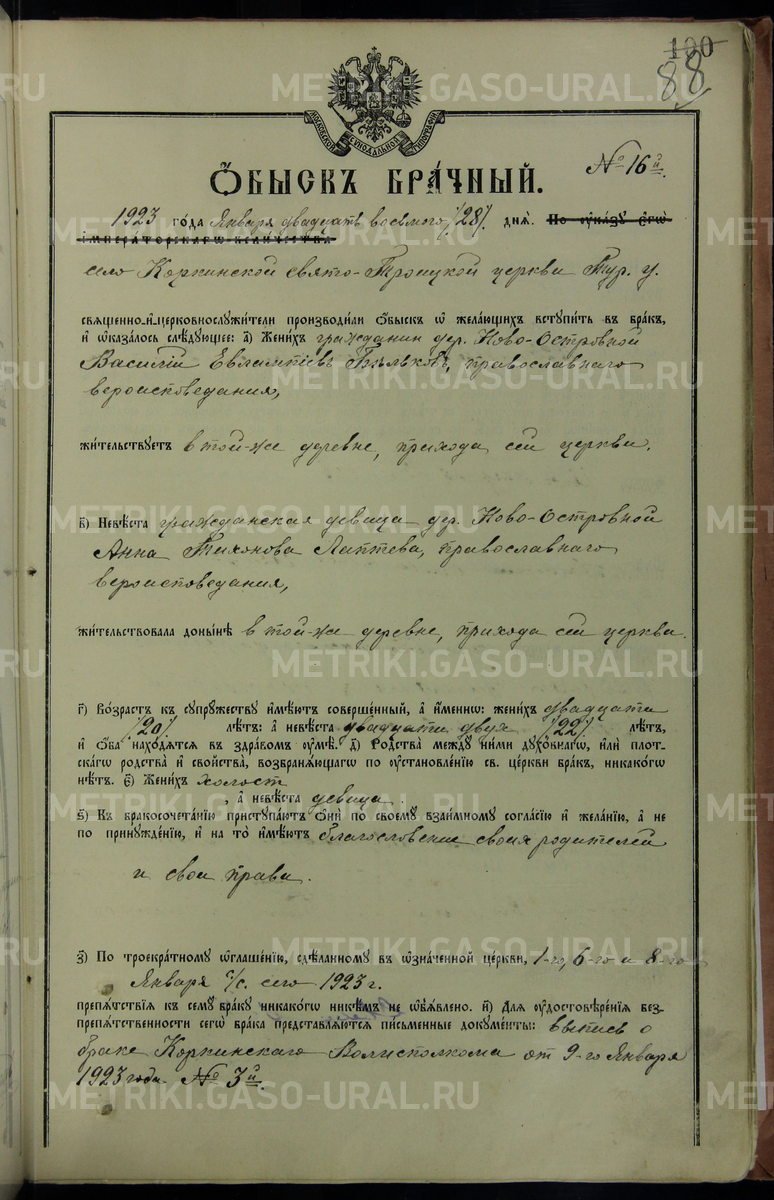 100
88
МОСКОВСКОЙ СѴНОДАЛЬНОЙ ТИПОГРАФІИ
№ 16й.
Ѻбыскъ брачный.
1923 года Января двадцать восьмого /28/. днѧ. По ᲂуказу єгѡ
императорскагѡ величества
село Коркинской Свято-Троицкой церкви Тур. у.
свѧщенно-и-церковнослужители производили ѻбыскъ ѡ желающихъ вступить въ бракъ,
и ѡказалось слѣдующее: а) Женихъ гражданин дер. Ново-Островной
Василій Евлампіевъ Бѣльковъ, православнаго
вероисповедания,
жительствуетъ в той-же деревне, прихода сей церкви.
в) Невѣста гражданская девица дер. Ново-Островной
Анна Тихонова Лаптева, православнаго
вероисповедания,
жительствовала донынѣ в той-же деревне, прихода сей церкви.
г) Возрастъ къ супружеству имѣютъ совершенный, а именнѡ: женихъ двадцати
/20/ лѣтъ: а невѣста двадцати двух /22/ лѣтъ,
и ѻба находѧтсѧ въ здравомъ умѣ. д) Родства между ними духовнагѡ, или плот-
скагѡ родства и свойства, возбранѧющагѡ по установленію св. церкви бракъ, никакогѡ
нѣтъ. є) Женихъ холост
, а невѣста девица.
ѕ) Къ бракосочетанію приступаютъ ѻни по своему взаимному согласію и желанію, а не
по принужденію, и на то имѣютъ благословение своих родителей
и свои права.
з) По троекратному ѡглашенію, сдѣланному въ ѡзначенной церкви, 1-го, 6-го и 8-го
Января с/с. сего 1923 г.
препѧтствіѧ къ сему браку никакогѡ никѣмъ не ѡбъѧвлено. и) Длѧ удостовѣреніѧ без-
препѧтственности сегѡ брака представлѧютсѧ письменные документы: выпись о
браке Коркинскаго Волисполкома от 9-го Января
1923 года № 3й.
METRIKI.GASO-URAL.RU